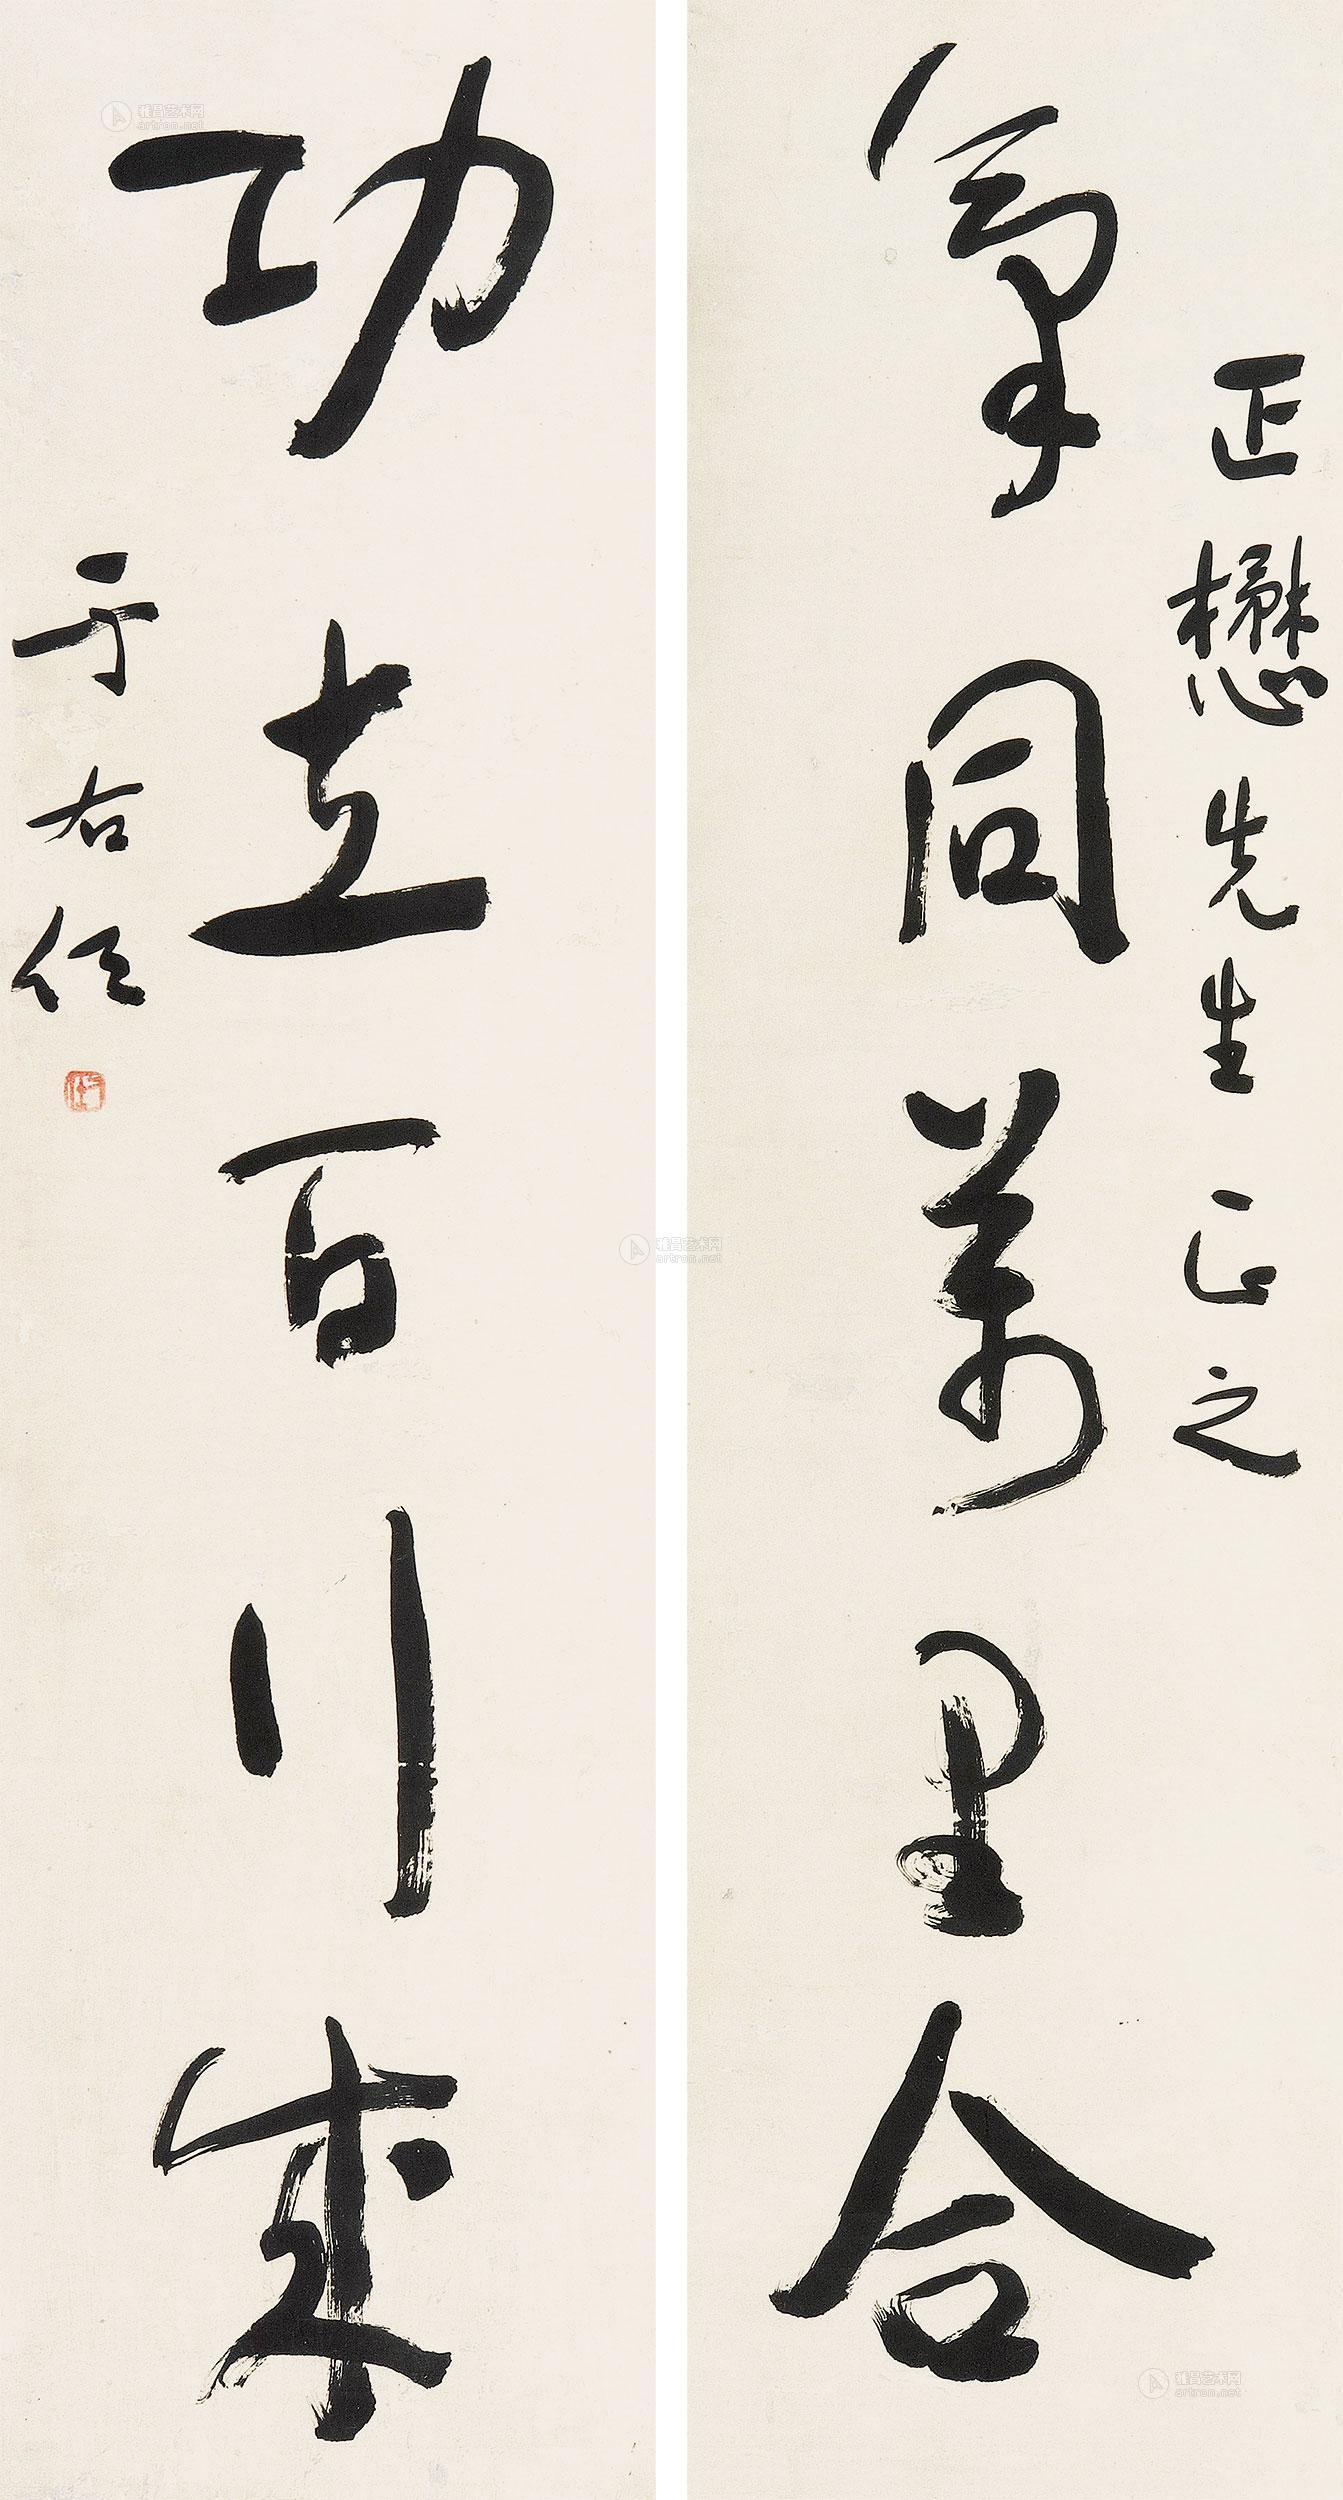 正懋先生正之
氣同萬里合
功立百行成
于右任
右任
雅昌艺术网
artron.net
雅昌艺术网
artron.net
雅昌艺术网
artron.net